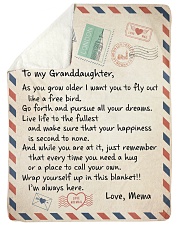 To my Granddaughter,
As you grow older I want you to fly out
like a free bird.
Go forth and pursue all your dreams.
Live life to the fullest
and make sure that your happiness
is second to none.
And while you are at it, just remember
that every time you need a hug
or a place to call your own.
Wrap yourself up in this blanket!!
I'm always here.
Love, Mema